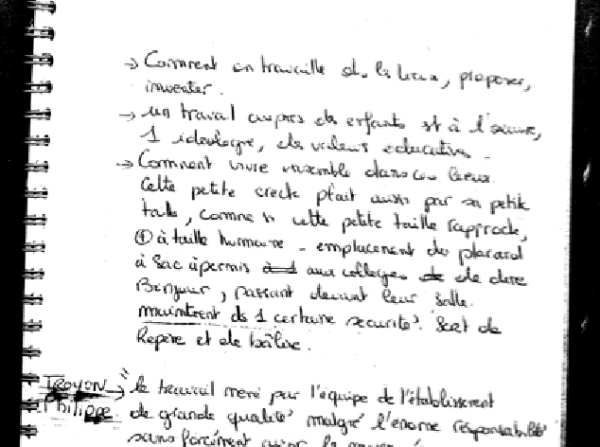 → Comment on travaille ds les lieux, proposer,
inventer.
→ un travail auprès des enfants est à l'œuvre,
1 idéologie, des valeurs éducatives.
→ Comment vivre ensemble dans ces lieux.
Cette petite creche plait aussi par sa petite
taille, comme si cette petite taille rapproche,
à taille humaine - emplacement du placard
à sac à permis aux collegues de dire
Bonjour, passant devant leur salle.
maintient ds 1 certaine securité. Sert de
Repère et de balise.
TROYON → "le travail mené par l'équipe de l'établissement
Philippe de grande qualité malgré l'énorme responsabilité
sans forcément avoir